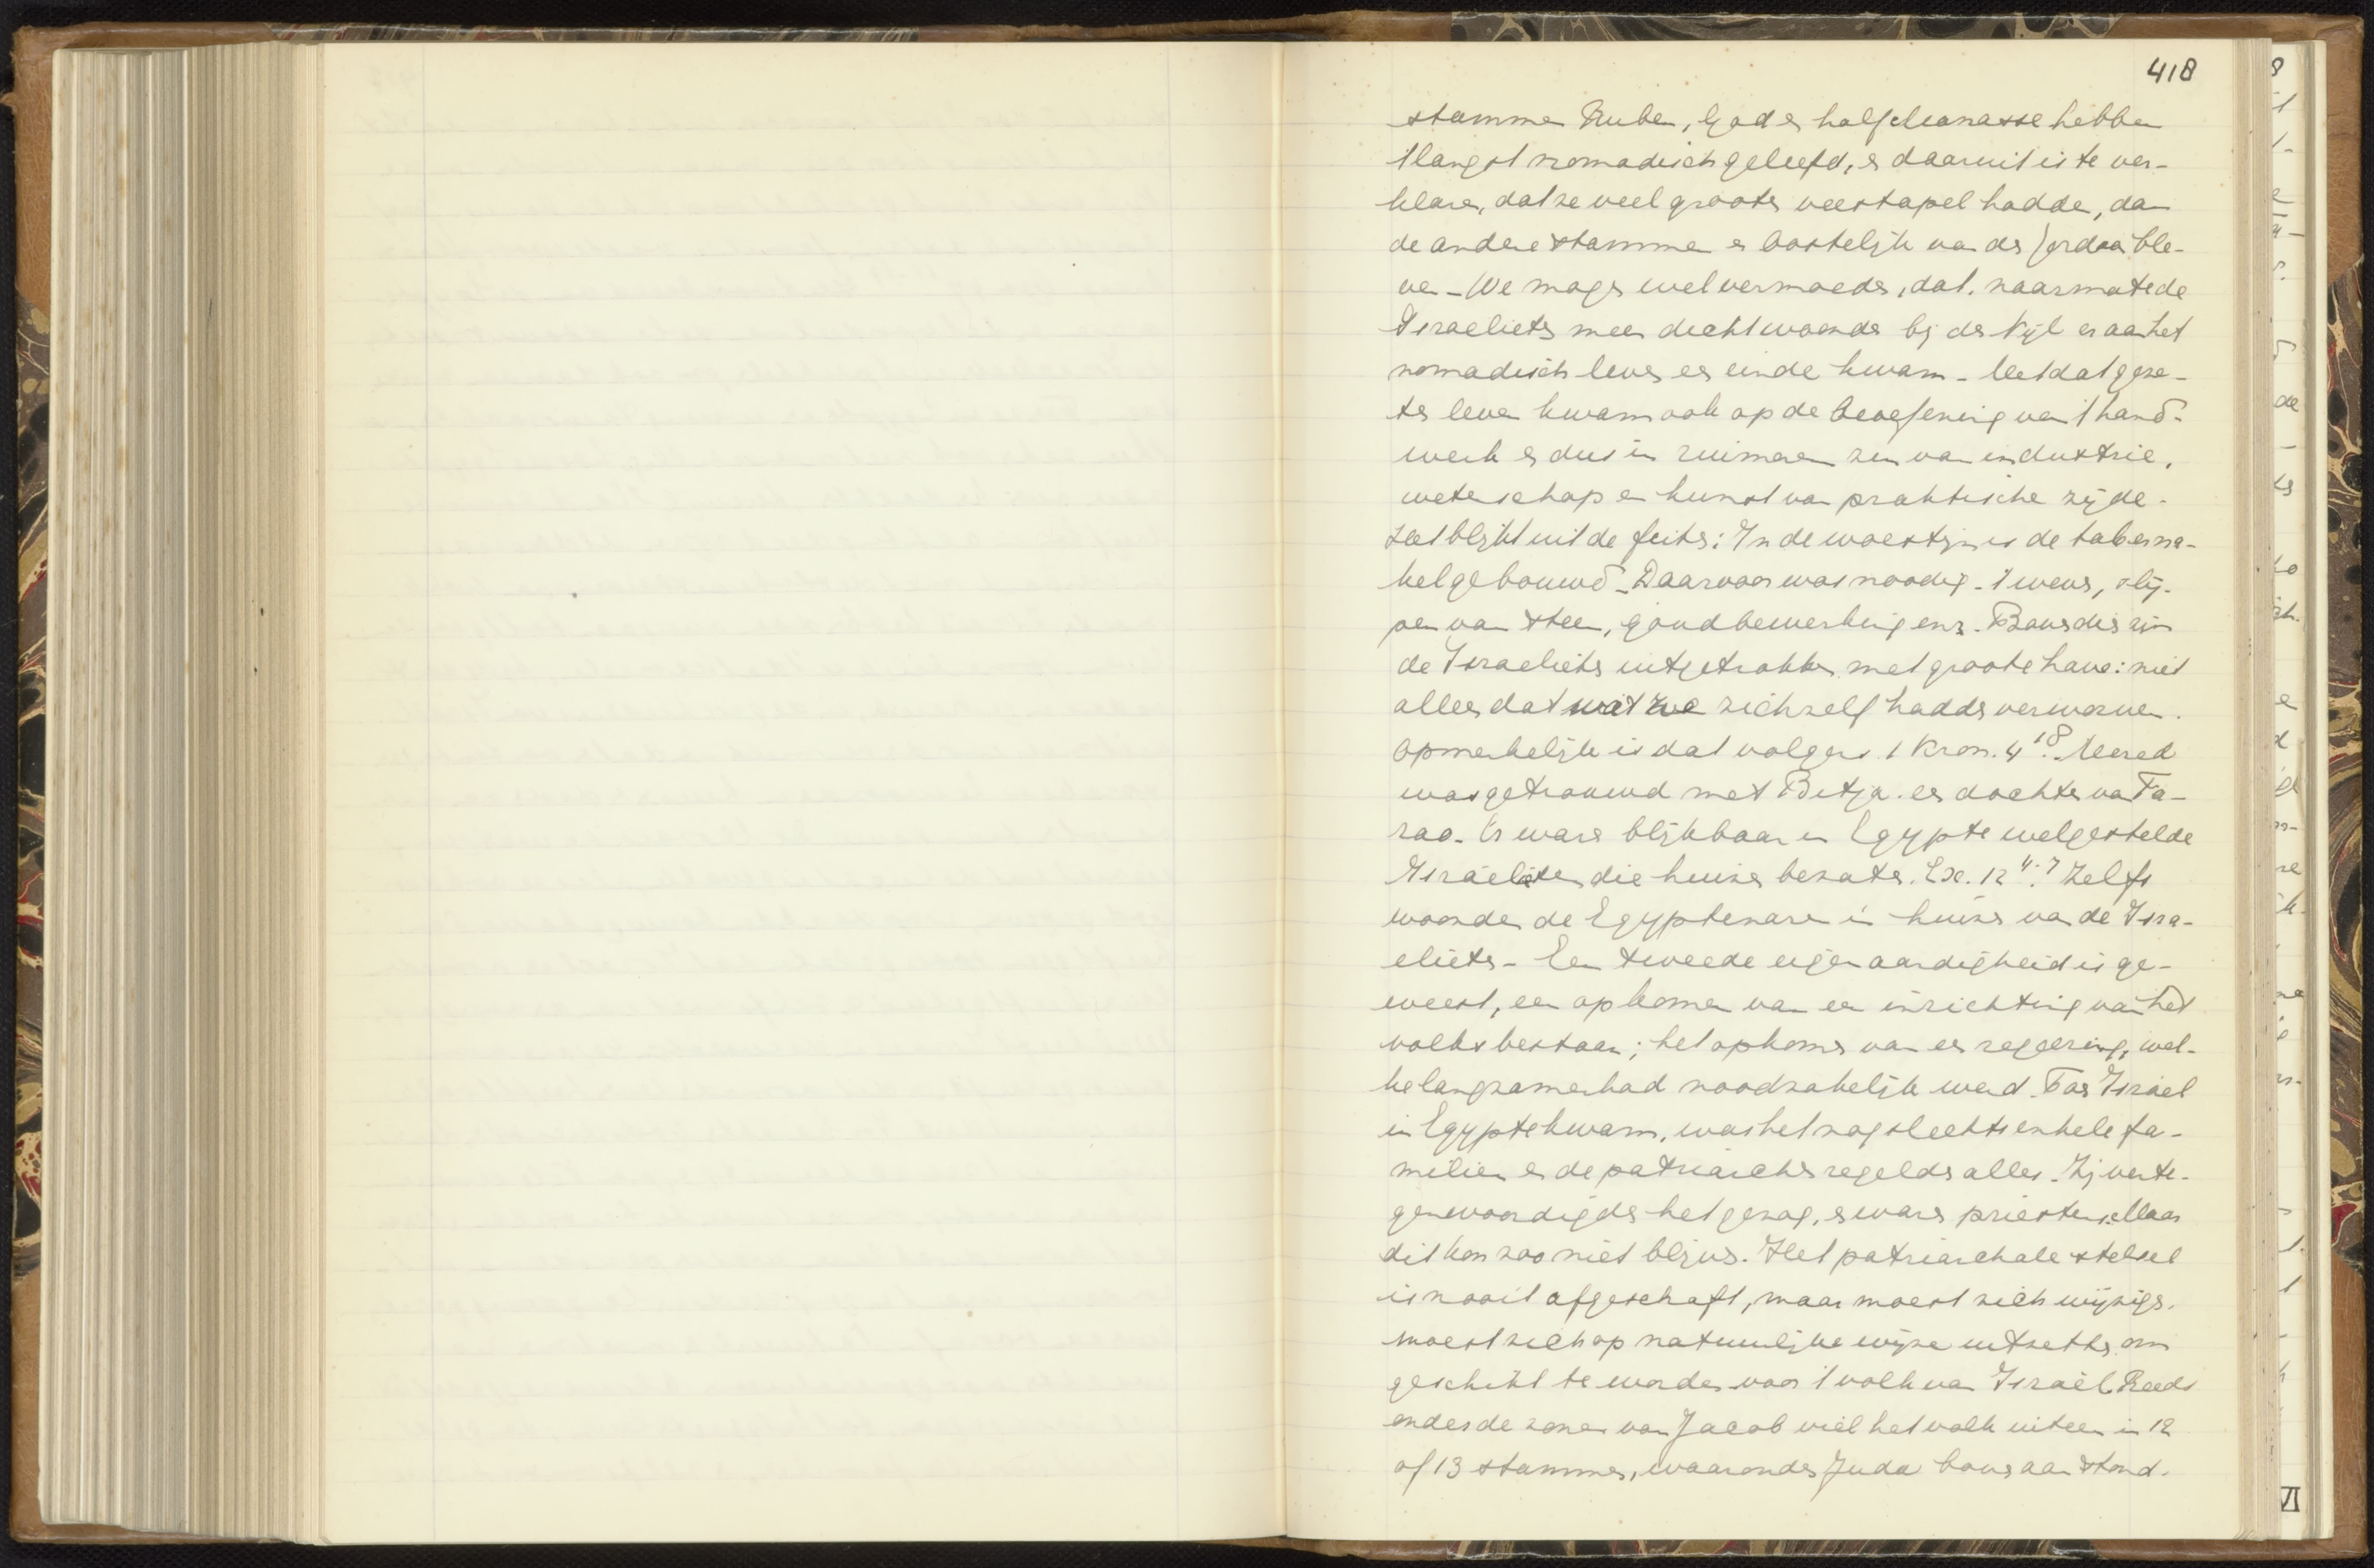 418
stammen Ruben, Gad en half Manasse hebben
't langst nomadisch geleefd, en daaruit is te ver-
klaren, dat ze veel grooter veestapel hadden, dan
de andere stammen en oostelijk van de Jordaan ble-
ven – We mogen wel vermoeden, dat, naarmate de
Israelieten meer dicht woonden bij de Nijl er aan het
nomadisch leven een einde kwam – Met dat geze-
ten leven kwam ook op de beoefening van 't hand-
werk en dus in ruimeren zin van industrie,
wetenschap en kunst van praktische zijde.
Het blijkt uit de feiten: In de woestijn is de taberna-
kel gebouwd – Daarvoor was noodig – 't weven, slij-
pen van steen, goudbewerking enz. Bovendien zijn
de Israelieten uitgetrokken met groote have: niet
alles dat wat ze zichzelf hadden verworven.
Opmerkelijk is dat volgens 1 Kron. 4 18. Mered
was getrouwd met Bitja. een dochter van Fa-
rao. Er waren blijkbaar in Egypte welgestelde
Israëlieten die huizen bezaten. Ex. 12 4.7 Zelfs
woonden de Egyptenaren in huizen van de Isra-
elieten – Een tweede eigenaardigheid is ge-
weest, een opkomen van een inrichting van het
volksbestaan; het opkomen van een regeering, wel-
ke langzamerhand noodzakelijk werd. Toen Israël
in Egypte kwam, was het nog slechts enkele fa-
milien en de patriarchen regelden alles. Zij verte-
genwoordigden het gezag, en waren priesters. Maar
dit kon zoo niet blijven. Het patriarchale stelsel
is nooit afgeschaft, maar moest zich wijzigen.
moest zich op natuurlijke wijze uitzetten om
geschikt te worden voor 't volk van Israël. Reeds
onder de zonen van Jacob viel het volk uiteen in 12
of 13 stammen, waaronder Juda bovenaan stond.
VI